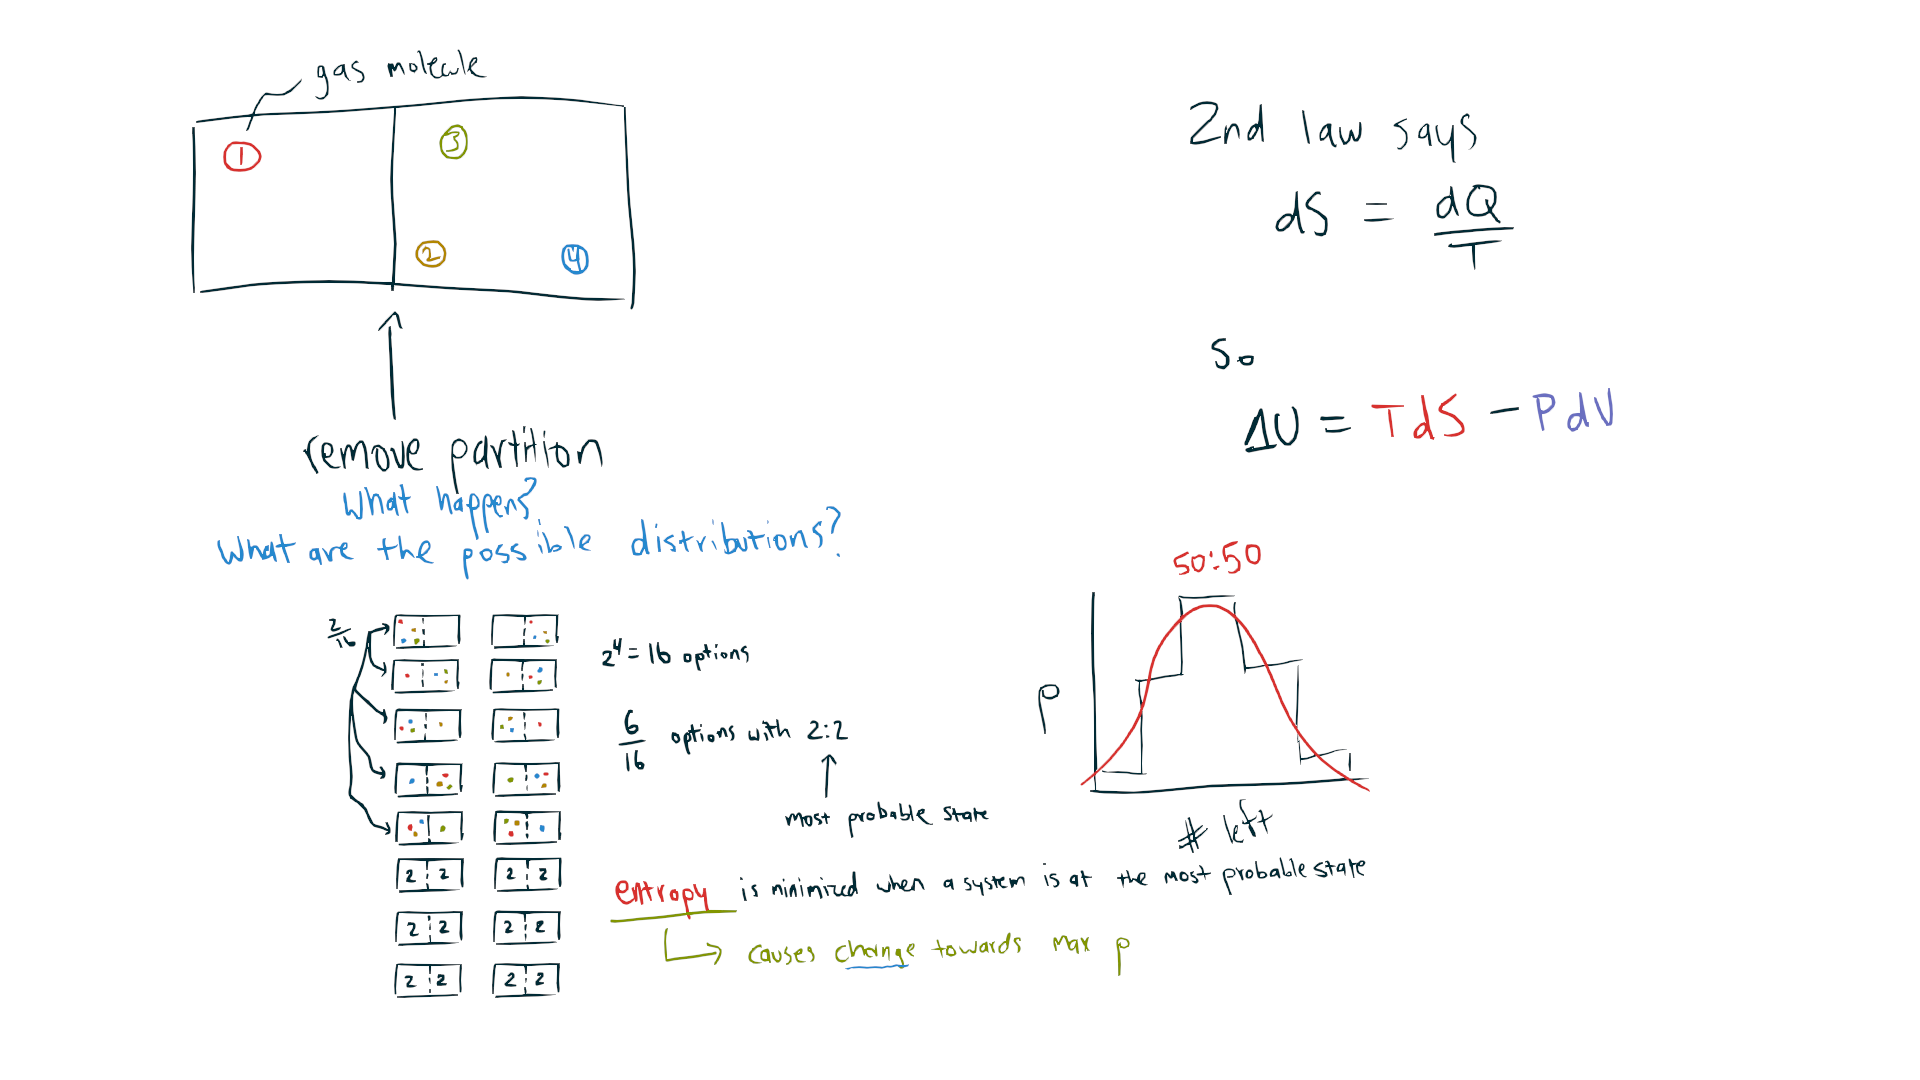 gas molecule
1
3
2
4
remove partition
What happens?
What are the possible distributions?
2/16
2⁴ = 16 options
6/16 options with 2:2
most probable state
2 2
2 2
2 2
2 2
2 2
2 2
entropy is minimized when a system is at the most probable state
causes change towards max p
2nd law says
dS = dQ/T
So
ΔU = TdS - PdV
50:50
P
# left